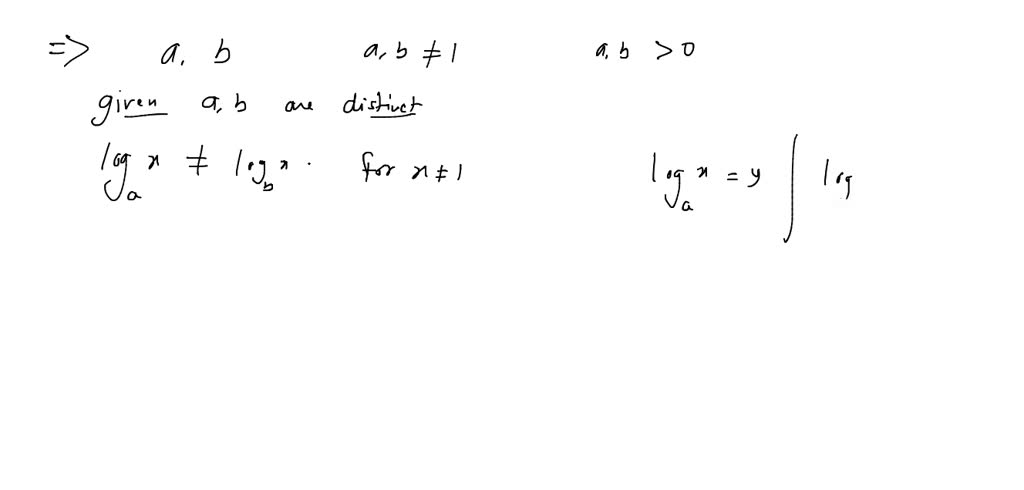 => a, b a, b ≠ 1 a, b > 0
given a, b are distinct
log_a x ≠ log_b x . for x ≠ 1 log_a x = y | log